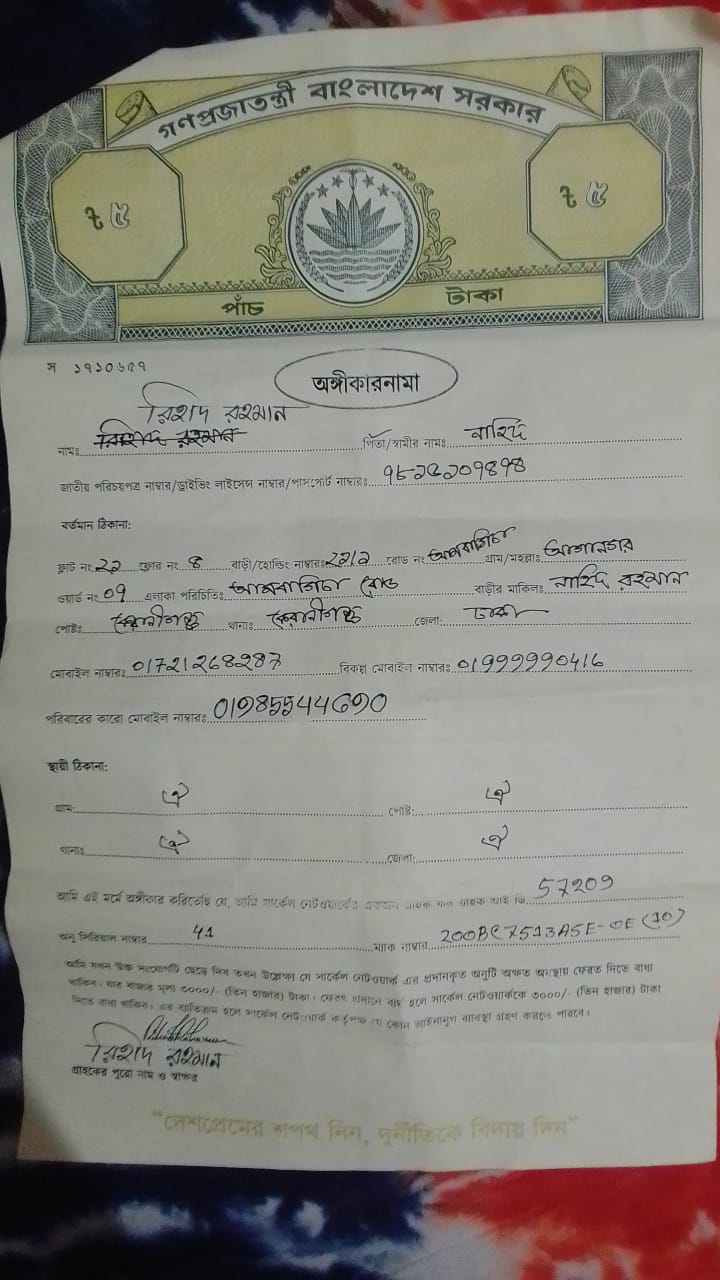 গণপ্রজাতন্ত্রী বাংলাদেশ সরকার
৳ ৫ ৳ ৫
পাঁচ টাকা
স ১৭১০৬৫৭
অঙ্গীকারনামা
রিশাদ রহমান
নামঃ রহমান পিতা/স্বামীর নামঃ নাহিদ
জাতীয় পরিচয়পত্র নাম্বার/ড্রাইভিং লাইসেন্স নাম্বার/পাসপোর্ট নাম্বারঃ
বর্তমান ঠিকানা:
ফ্লাট নং ফ্লোর নং ৪ বাড়ী/হোল্ডিং নাম্বারঃ রোড নং গ্রাম/মহল্লাঃ
ওয়ার্ড নং ০৭ এলাকা পরিচিতিঃ রোড বাড়ীর মালিকঃ নাহিদ রহমান
পোষ্টঃ কেরানীগঞ্জ থানাঃ কেরানীগঞ্জ জেলা: ঢাকা
মোবাইল নাম্বারঃ 01721268287 বিকল্প মোবাইল নাম্বারঃ 01999990416
পরিবারের কারো মোবাইল নাম্বারঃ
স্থায়ী ঠিকানা:
গ্রাম: ঐ পোষ্ট: ঐ
থানাঃ ঐ জেলা: ঐ
আমি এই মর্মে অঙ্গীকার করিতেছি যে, আমি সার্কেল নেটওয়ার্কের একজন গ্রাহক যার গ্রাহক আই ডি 57209
অনু সিরিয়াল নাম্বার 41 ম্যাক নাম্বার
আমি যখন উক্ত সংযোগটি ছেড়ে দিব তখন উল্লেখ্য যে সার্কেল নেটওয়ার্ক এর প্রদানকৃত অনুটি অক্ষত অবস্থায় ফেরত দিতে বাধ্য
থাকিব। যার বাজার মূল্য ৩০০০/- (তিন হাজার) টাকা। ফেরৎ প্রদানে ব্যর্থ হলে সার্কেল নেটওয়ার্ককে ৩০০০/- (তিন হাজার) টাকা
দিতে বাধ্য থাকিব। এর ব্যতিক্রম হলে সার্কেল নেটওয়ার্ক কর্তৃপক্ষ যে কোন আইনানুগ ব্যবস্থা গ্রহণ করতে পারবে।
রিশাদ রহমান
গ্রাহকের পুরো নাম ও স্বাক্ষর
"দেশপ্রেমের শপথ নিন, দুর্নীতিকে বিদায় দিন"